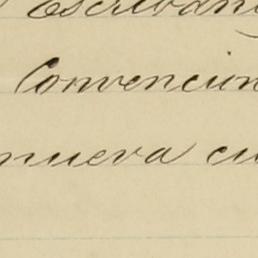 Escriban
Convencion
nueva cu